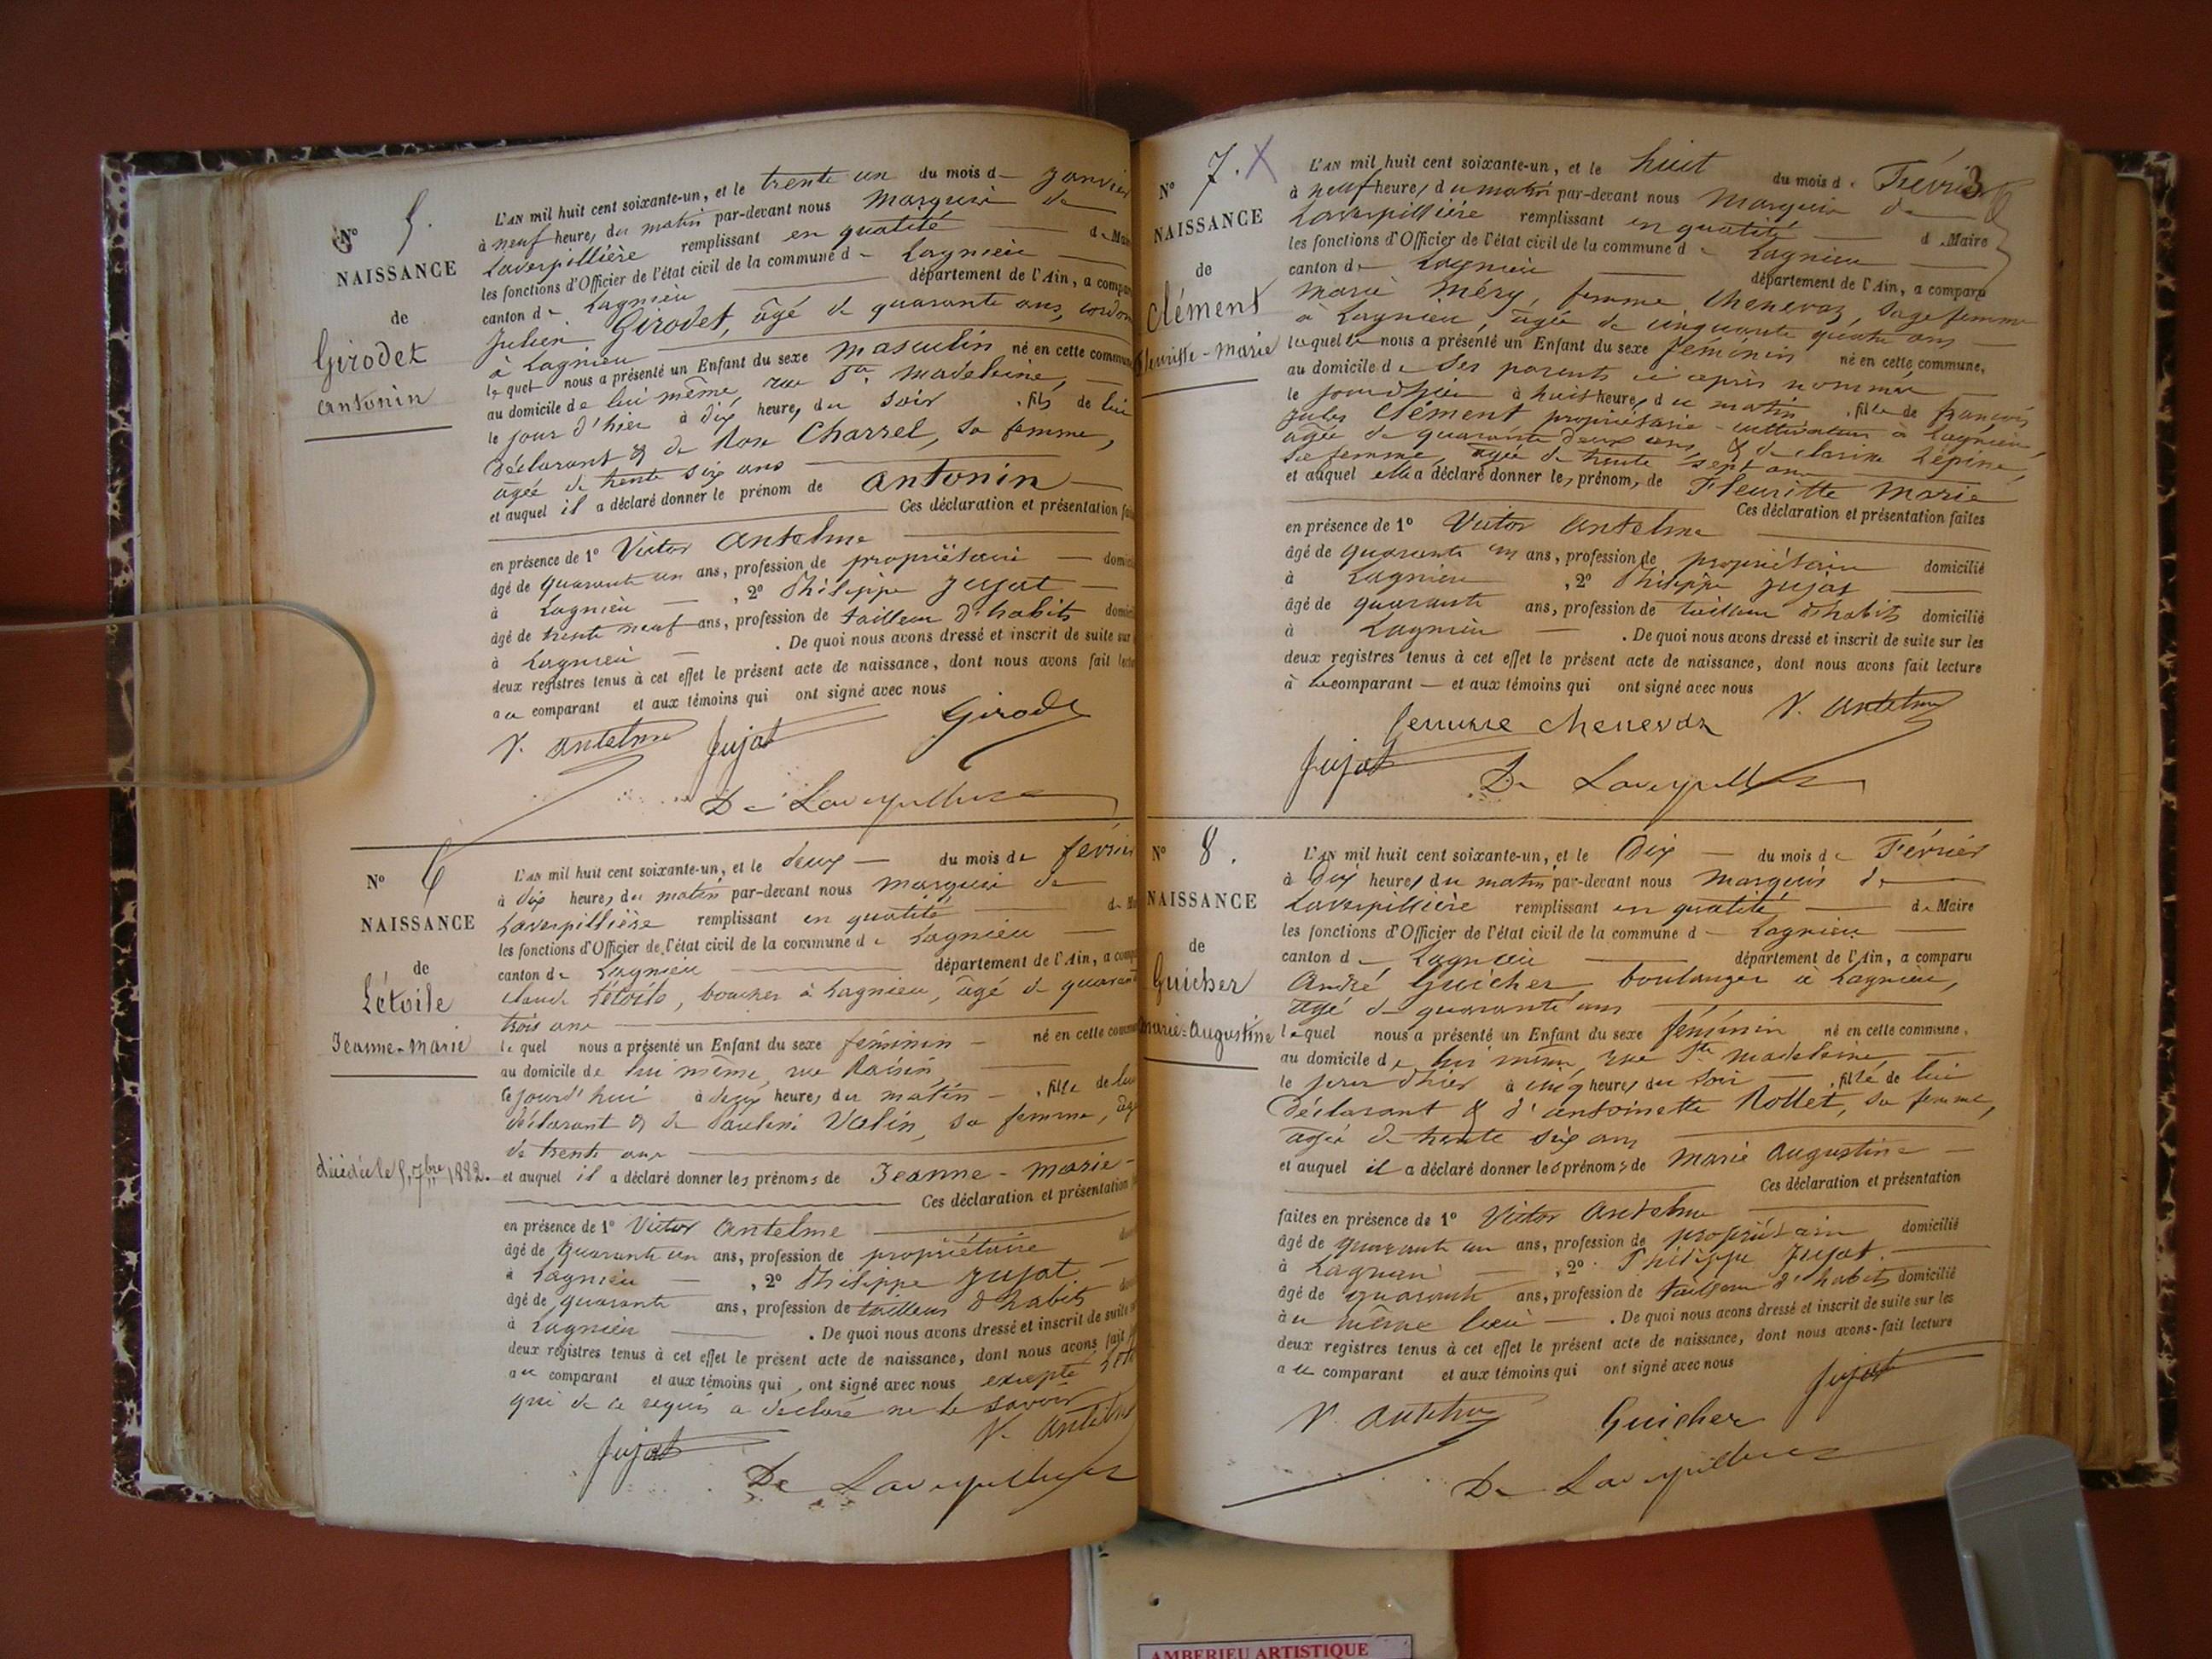 N° 5.
NAISSANCE
de
Girodet
Antonin
L'AN mil huit cent soixante-un, et le trente un du mois d Janvier
à neuf heures du matin par-devant nous Marquis de
Laverpillière remplissant en qualité de Maire
les fonctions d'Officier de l'état civil de la commune d Lagnieu
canton de Lagnieu département de l'Ain, a comparu
Julien Girodet, âgé de quarante ans,
à Lagnieu
lequel nous a présenté un Enfant du sexe masculin né en cette commune
au domicile de lui même, rue Ste Madeleine,
le jour d'hier à dix heures du soir, fils de lui
déclarant & de Rose Charrel, sa femme,
âgée de trente six ans
et auquel il a déclaré donner le prénom de Antonin
Ces déclaration et présentation
en présence de 1° Victor Antelme
âgé de quarante un ans, profession de propriétaire
à Lagnieu, 2° Philippe Jujat
âgé de trente neuf ans, profession de tailleur d'habits
à Lagnieu. De quoi nous avons dressé et inscrit de suite sur
deux registres tenus à cet effet le présent acte de naissance, dont nous avons fait
au comparant et aux témoins qui ont signé avec nous
V. Antelme Jujat Girodet
De Laverpilliere
N° 6
NAISSANCE
de
Létoile
Jeanne-Marie
décédée le 5 7bre 1882.
L'AN mil huit cent soixante-un, et le deux du mois de février
à dix heures du matin par-devant nous Marquis de
Laverpillière remplissant en qualité de
les fonctions d'Officier de l'état civil de la commune de Lagnieu
canton de Lagnieu département de l'Ain, a
Claude Létoile, boucher à Lagnieu, âgé de quarante
trois ans
lequel nous a présenté un Enfant du sexe féminin né en cette
au domicile de lui même, rue Raisin,
le jourd'hui à deux heures du matin, fille de lui
déclarant & de Pauline Valin, sa femme, âgée
de trente ans
et auquel il a déclaré donner les prénoms de Jeanne-Marie-
Ces déclaration et présentation
en présence de 1° Victor Antelme
âgé de quarante un ans, profession de propriétaire
à Lagnieu, 2° Philippe Jujat
âgé de quarante ans, profession de tailleur d'habits
à Lagnieu. De quoi nous avons dressé et inscrit de suite
deux registres tenus à cet effet le présent acte de naissance, dont nous avons fait
au comparant et aux témoins qui ont signé avec nous excepté
qui de ce requis a déclaré ne le savoir
Jujat V. Antelme
De Laverpilliere
N° 7. X
NAISSANCE
de
Clément
Fleuritte-Marie
3
L'AN mil huit cent soixante-un, et le huit du mois de Février
à neuf heures du matin par-devant nous Marquis de
Laverpillière remplissant en qualité d Maire
les fonctions d'Officier de l'état civil de la commune d Lagnieu
canton de Lagnieu département de l'Ain, a comparu
Marie Méry, femme Chenevaz, sage femme
à Lagnieu, âgée de cinquante quatre ans
lequel nous a présenté un Enfant du sexe féminin né en cette commune,
au domicile de ses parents ci après nommés
le jourd'hui à huit heures du matin, fille de françois
Jules Clément propriétaire-cultivateur à Lagnieu,
âgé de quarante deux ans, & de Clarine Lépine,
sa femme, âgée de trente sept ans
et auquel elle a déclaré donner les prénoms de Fleuritte Marie
Ces déclaration et présentation faites
en présence de 1° Victor Antelme
âgé de quarante un ans, profession de propriétaire domicilié
à Lagnieu, 2° Philippe Jujat
âgé de quarante ans, profession de tailleur d'habits domicilié
à Lagnieu. De quoi nous avons dressé et inscrit de suite sur les
deux registres tenus à cet effet le présent acte de naissance, dont nous avons fait lecture
à comparant et aux témoins qui ont signé avec nous
femme Chenevaz V. Antelme
Jujat De Laverpilliere
N° 8.
NAISSANCE
de
Guicher
Marie-Augustine
L'AN mil huit cent soixante-un, et le Dix du mois de Février
à dix heures du matin par-devant nous Marquis de
Laverpillière remplissant en qualité de Maire
les fonctions d'Officier de l'état civil de la commune d Lagnieu
canton de Lagnieu département de l'Ain, a comparu
André Guicher boulanger à Lagnieu,
âgé de quarante ans
lequel nous a présenté un Enfant du sexe féminin né en cette commune,
au domicile de lui même, rue Ste Madeleine,
le jour d'hier à cinq heures du soir, fille de lui
déclarant & d'antoinette Rollet, sa femme,
âgée de trente six ans
et auquel il a déclaré donner les prénoms de Marie Augustine
Ces déclaration et présentation
faites en présence de 1° Victor Antelme
âgé de quarante un ans, profession de propriétaire domicilié
à Lagnieu, 2° Philippe Jujat.
âgé de quarante ans, profession de tailleur d'habits domicilié
au même lieu. De quoi nous avons dressé et inscrit de suite sur les
deux registres tenus à cet effet le présent acte de naissance, dont nous avons fait lecture
au comparant et aux témoins qui ont signé avec nous
V. Antelme Guicher Jujat
De Laverpilliere
AMBERIEU ARTISTIQUE